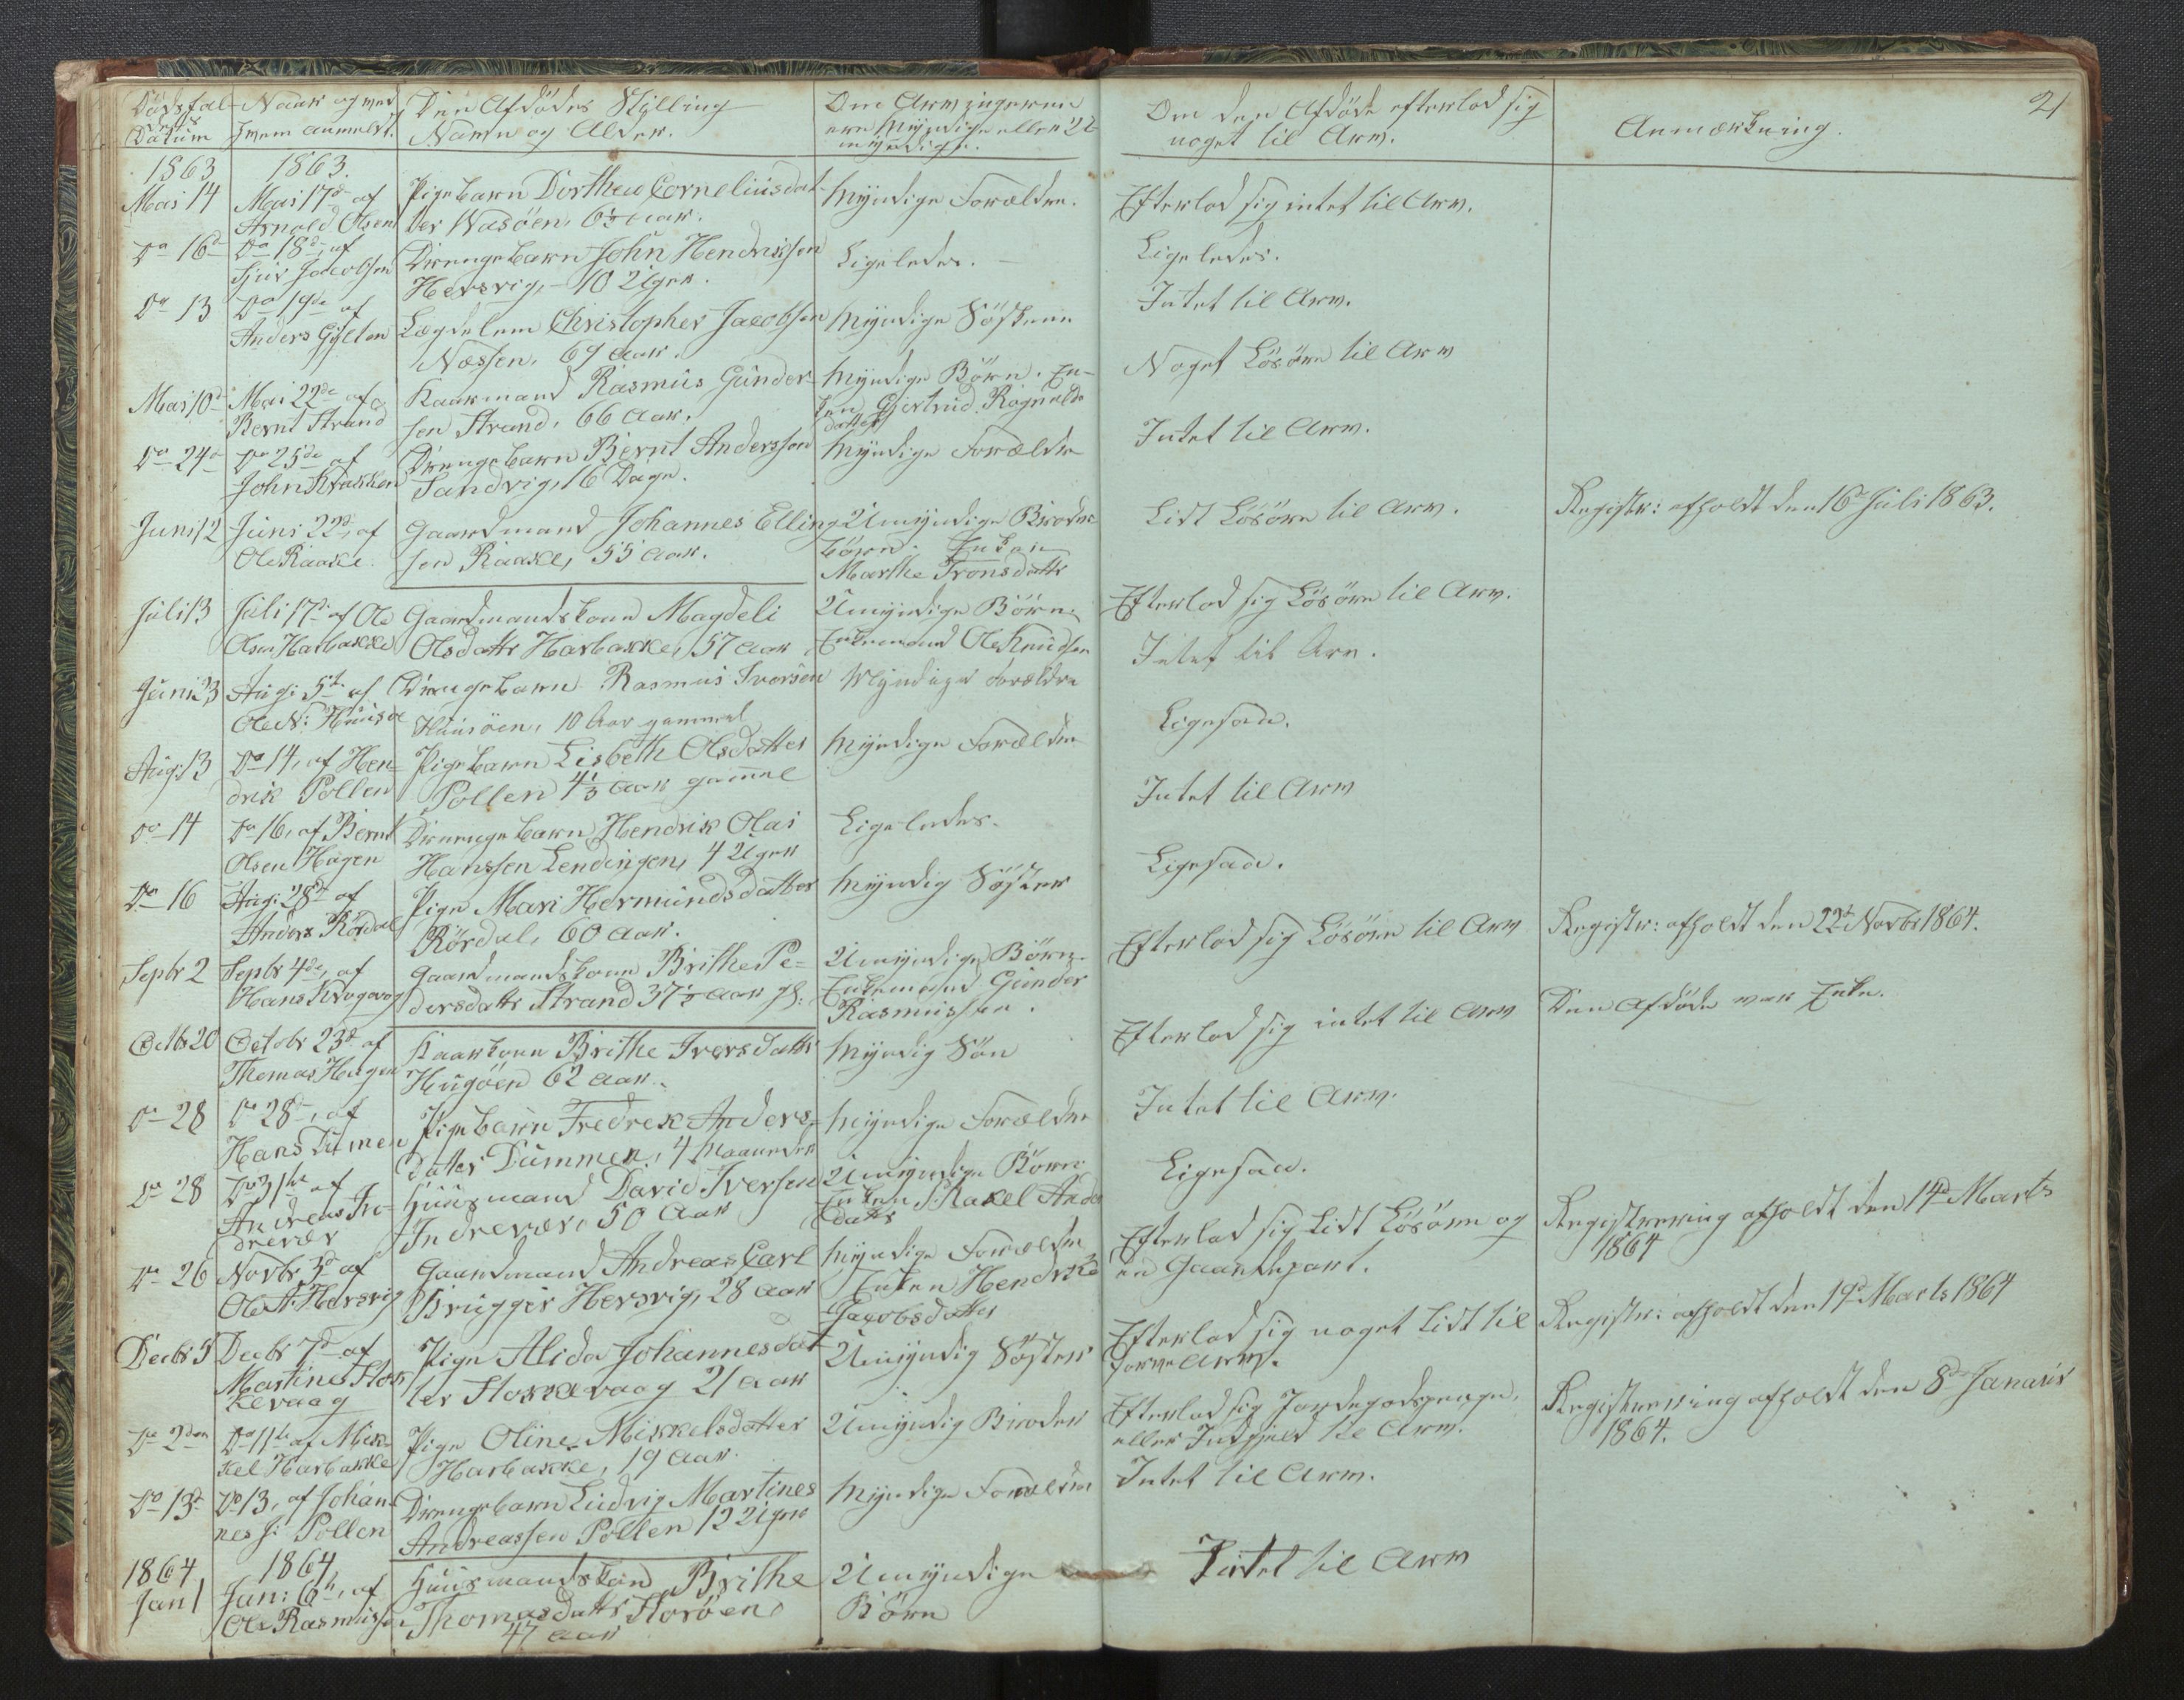 Dødsfal- Naar og med Den Afdødes Stilling Om Arvingerne Om den Afdøde efterlod sig 21
Datum hvem anmeldt. Navn og Alder. ere Myndige eller U- noget til Arv. Anmærkning.
myndige.
1863 1863.
Mai 14 Mai 17de af Pigebarn Dorthea Corneliusdat- Myndige Forældre. Efterlod sig intet til Arv.
Arnold Olsen ter Wasöen, 6½ Aar.
Do 16d Do 18d, af Drengebarn John Hendrikssen Ligeledes. Ligeledes.
Siur Jacobsen Hersvig, 10 Uger.
Do 13 Do 19de af Lægdslem Christopher Jacobsen Myndige Södskene Intet til Arv.
Anders Gylten Næssen, 69 Aar.
Mai 10d Mai 22de af Kaarmand Rasmus Gunder- Myndige Börn. En- Noget Lösöre til Arv
Bernt Strand sen Strand, 66 Aar. ken Gjertrud Rognalds
datter
Do 24d Do 25de af Drengebarn Bernt Anderssen Myndige Forældre Intet til Arv.
John Krakken Sandvig, 16 Dage.
Juni 12 Juni 22d, af Gaardmand Johannes Elling- Umyndige Broder Lidt Lösöre til Arv. Registr: afholdt den 16d Juli 1863.
Ole Raake. sen Raake, 55 Aar. börn. Enken
Marthe Tronsdattr
Juli 13 Juli 17d af Ole Gaardmandskone Magdeli Umyndige Börn. Efterlod sig Lösöre til Arv.
Olsen Harbakke Olsdattr Harbakke, 57 Aar Enkemand Ole Knudsen
Juni 23 Aug: 5te af Drengebarn Rasmus Iversen Myndige Forældre Intet til Arv.
Ole N: Huusöe Huusöen, 10 Aar gammel
Aug: 13 Do 14, af Hen- Pigebarn Lisbeth Olsdatter Myndige Forældre Ligesaa.
drik Pollen Pollen 4⅓ Aar gammel
Do 14 Do 16, af Bernt Drengebarn Hendrik Olai Ligeledes. Intet til Arv
Olsen Hagen Hanssen Lendingen, 4 Uger
Do 16 Aug: 28d af Pige Mari Hermundsdatter Myndig Söster Ligesaa.
Anders Rördal Rördal, 60 Aar.
Septbr 2 Septbr 4de, af Gaardmandskone Brithe Pe- Umyndige Börn. Efterlod sig Lösöre til Arv Registr: afholdt den 22d Novbr 1864.
Hans Krogevog dersdattr Strand 37½ Aar gl: Enkemand Gunder
Rasmussen.
Octbr 20 Octobr 23d af Kaarkone Brithe Iversdattr Myndig Sön Efterlod sig intet til Arv Den Afdöde var Enke.
Thomas Hagen Hugöen 62 Aar.
Do 28 Do 28d, af Pigebarn Fredrek Anders- Myndige Forældre Intet til Arv.
Hans Dumen datter Dummen, 4 Maaneder
Do 28 Do 31te af Huusmand David Iversen Umyndige Börn Ligesaa.
Andreas In- Indrevær, 50 Aar Enken Rakel Anders
drevær datter
Do 26 Novbr 5d af Gaardmand Andreas Carl Myndige Forældre Efterlod sig Lidt Lösöre og Registrering afholdt den 14d Marts
Ole A: Hersvig Brügger Hersvig, 28 Aar Enken Hendrikke en Gaardepart. 1864
Jacobsdatter
Decbr 5 Decbr 7d af Pige Alida Johannesdat Umyndig Söster Efterlod sig noget Lidt til Registr: afholdt den 19d Marts 1864
Martinus Hos ter Hoskevaag 21 Aar Arv.
kevaag
Do 2den Do 11te af Mik- Pige Oline Mikkelsdatter Umyndig Broder Efterlod sig Jordegodspenge, Registrering afholdt den 8d Januar
kel Harbakke Harbakke, 19 Aar. eller Indgield til Arv. 1864.
Do 13d Do 13, af Johan- Drengebarn Ludvig Martines Myndige Forældre Intet til Arv.
nes J: Pollen Andreassen Pollen 12 Uger
1864 1864
Jan 1 Jan: 6te, af Huusmandskone Brithe Umyndige Intet til Arv
Ole Rasmussen Thomasdattr Horöen, Börn
47 Aar